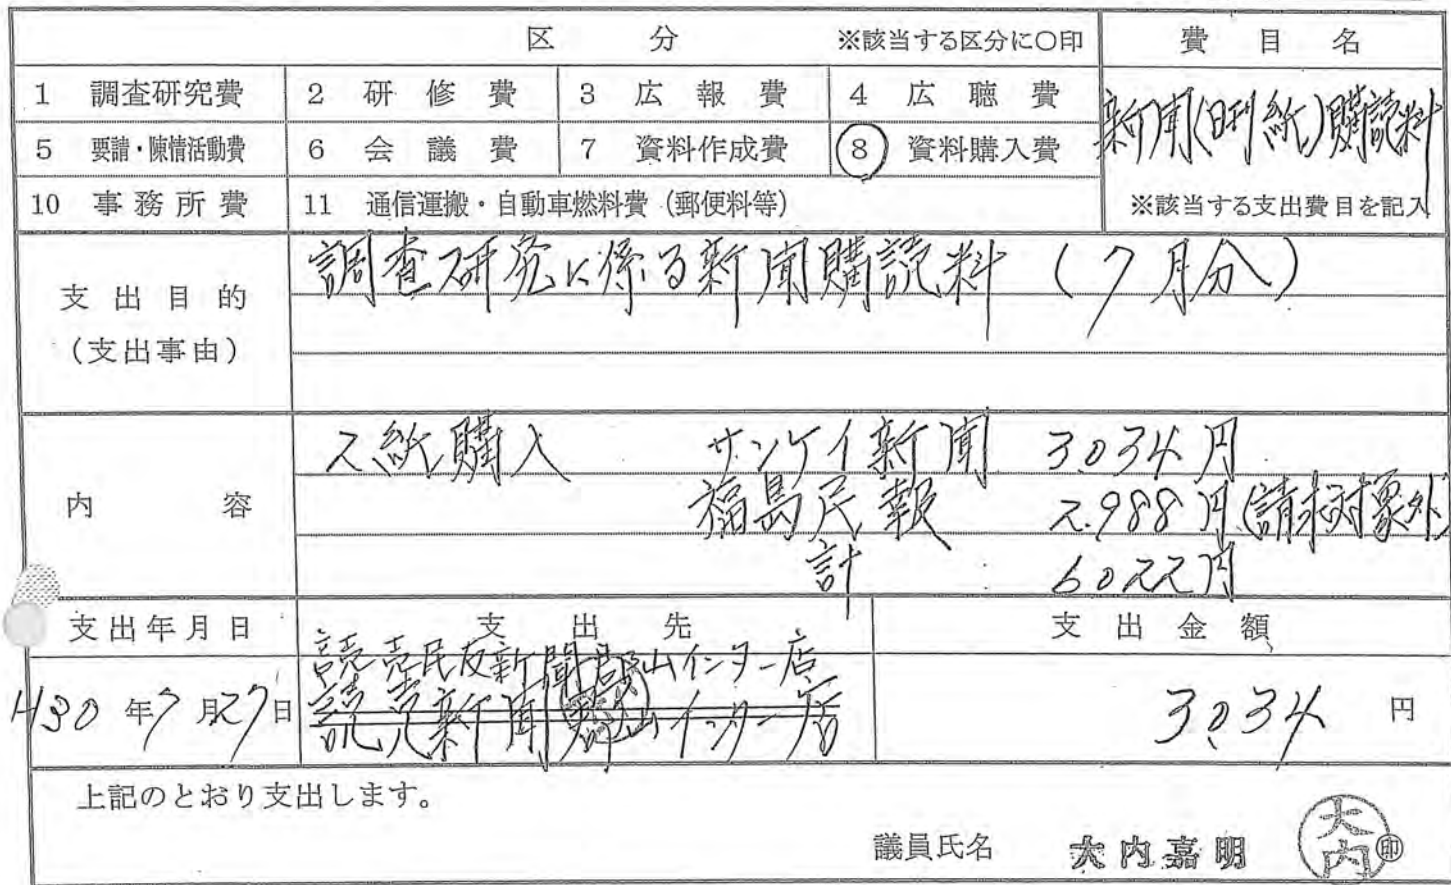 区　分　※該当する区分に○印　費目名
1 調査研究費　2 研修費　3 広報費　4 広聴費
新聞(日刊紙)購読料
5 要請・陳情活動費　6 会議費　7 資料作成費　8 資料購入費
10 事務所費　11 通信運搬・自動車燃料費（郵便料等）　※該当する支出費目を記入
支出目的
(支出事由)
調査研究に係る新聞購読料(7月分)
内容
2紙購入　サンケイ新聞　3,034円
福島民報　2,988円(請求対象外)
計　6022円
支出年月日　支出先　支出金額
読売民友新聞郡山インター店
H30年7月27日　読売新聞郡山インター店　3,034円
上記のとおり支出します。
議員氏名　大内嘉明　大内　印